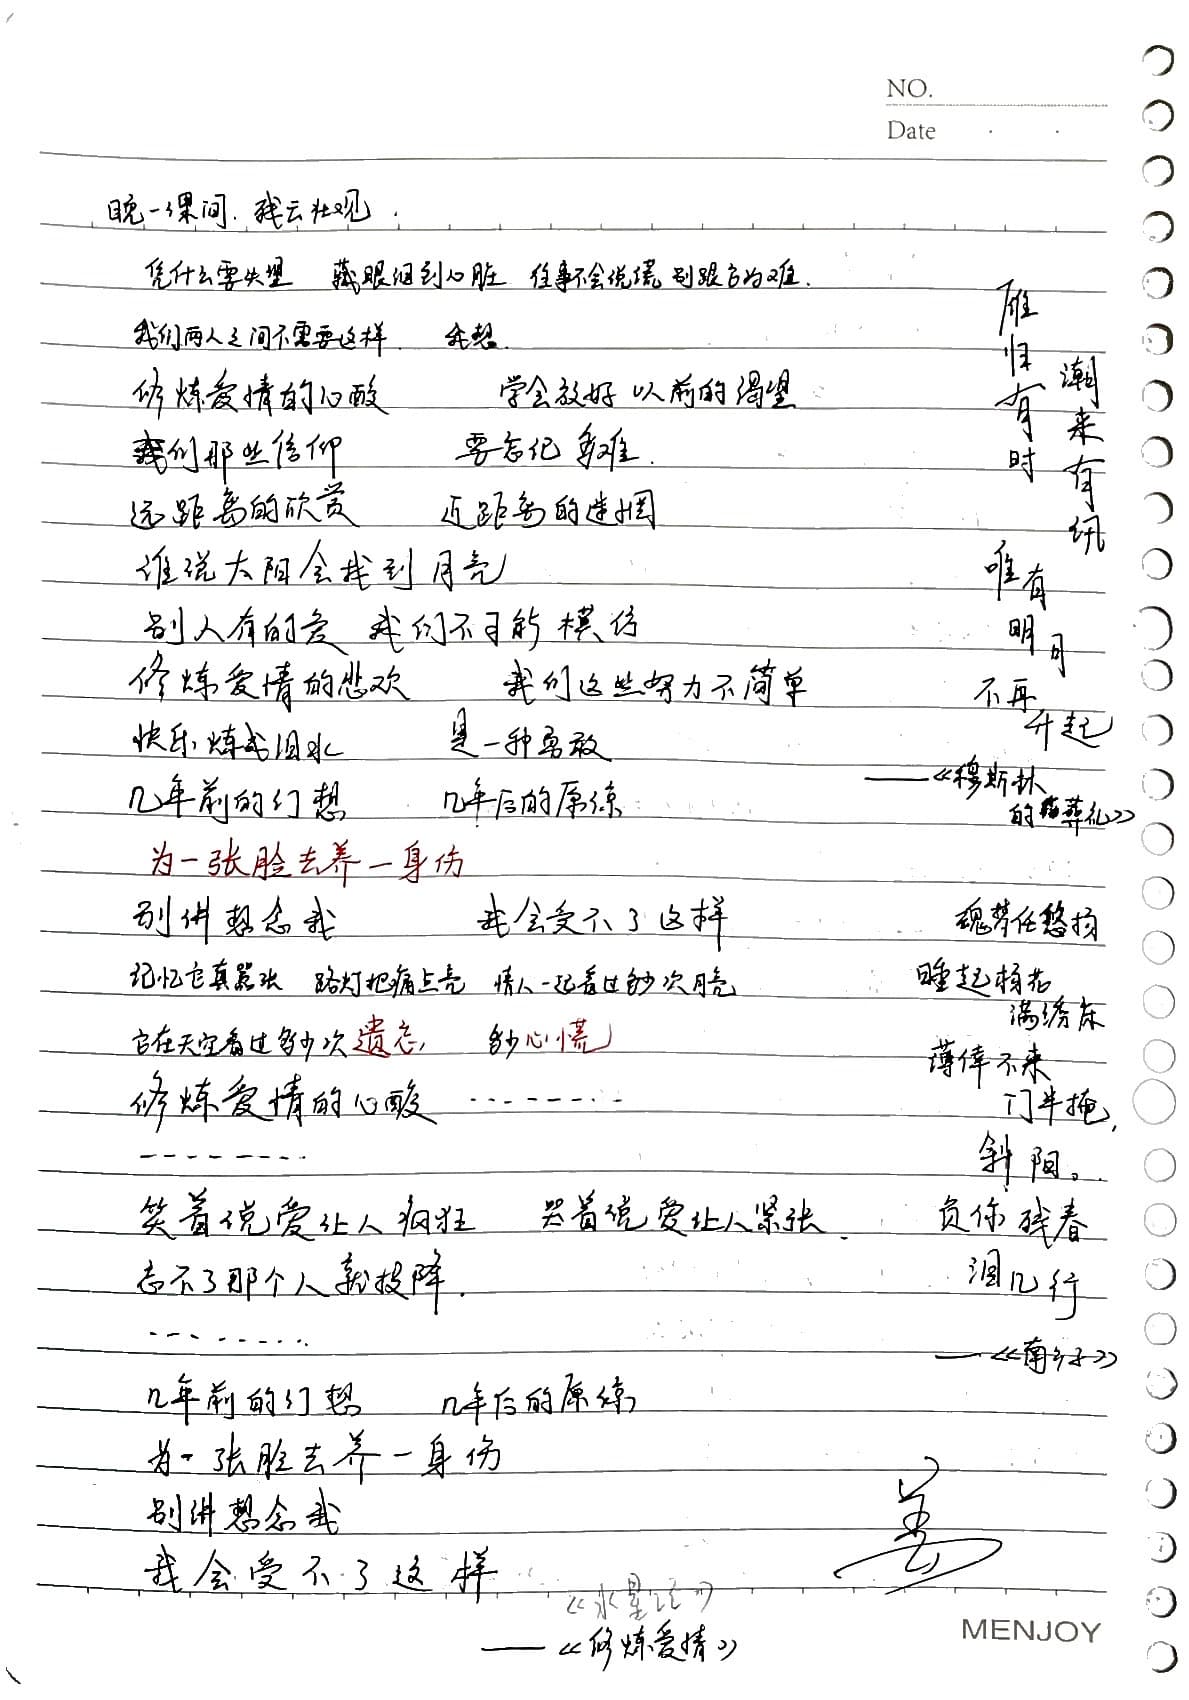 NO.
Date
晚一课间.残云壮观.
凭什么要失望 藏眼泪到心脏 往事不会说谎 别跟它为难.
我们两人之间不需要这样. 我想.
修炼爱情的心酸 学会放好以前的渴望
我们那些信仰 要忘记多难.
远距离的欣赏 近距离的迷惘
谁说太阳会找到月亮
别人有的爱 我们不可能模仿
修炼爱情的悲欢 我们这些努力不简单
快乐炼成泪水 是一种勇敢
几年前的幻想 几年后的原谅
为一张脸去养一身伤
别讲想念我 我会受不了这样
记忆它真嚣张 路灯把痛点亮 情人一起看过多少次月亮
它在天空看过多少次遗忘, 多少心慌
修炼爱情的心酸 --------
--------
笑着说爱让人疯狂 哭着说爱让人紧张.
忘不了那个人就投降.
--------
几年前的幻想 几年后的原谅
为一张脸去养一身伤
别讲想念我
我会受不了这样
《水星记》
——《修炼爱情》
雁归有时
潮来有汛
唯有
明月
不再
升起
——《穆斯林
的葬礼》
魂梦任悠扬
睡起杨花
满绣床
薄倖不来
门半掩,
斜阳。
负你残春
泪几行
——《南乡子》
MENJOY